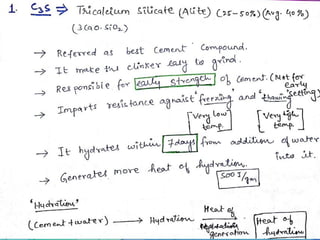 1. C3S ⇒ Tricalcium Silicate (Alite) (25-50%) (Avg. 40%)
(3CaO.SiO2)
→ Referred as best cement compound.
→ It make the clinker easy to grind.
→ Responsible for early strength of cement. (Not for early setting)
→ Imparts resistance against 'freezing' and 'thawing'
[Very low temp.] [Very high temp.]
→ It hydrates within 7days from addition of water into it.
→ Generates more heat of hydration.
500 J/gm
'Hydration'
(Cement + water) → Hydration Heat of generation Heat of hydration